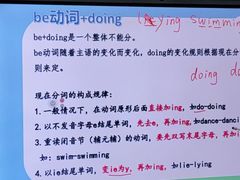 be动词+doing
lying swimming
be+doing是一个整体不能分。
be动词随着主语的变化而变化，doing的变化规则根据现在分
则来定。
doing do
现在分词的构成规律：
1. 一般情况下，在动词原形后面直接加ing，如do-doing
2. 以不发音字母e结尾动词，先去e，再加ing，如dance-danci
3. 重读闭音节（辅元辅）的动词，要先双写末尾字母，再加
如：swim-swimming
4. 以ie结尾单词，变ie为y，再加ing，如lie-lying